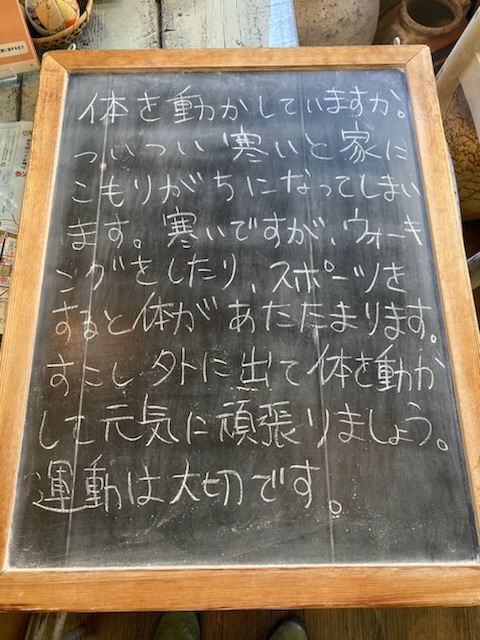 体を動かしていますか。
ついつい寒いと家に
こもりがちになってしまい
ます。寒いですが、ウォーキ
ングをしたり、スポーツを
すると体があたたまります。
すこし外に出て体を動か
して元気に頑張りましょう。
運動は大切です。